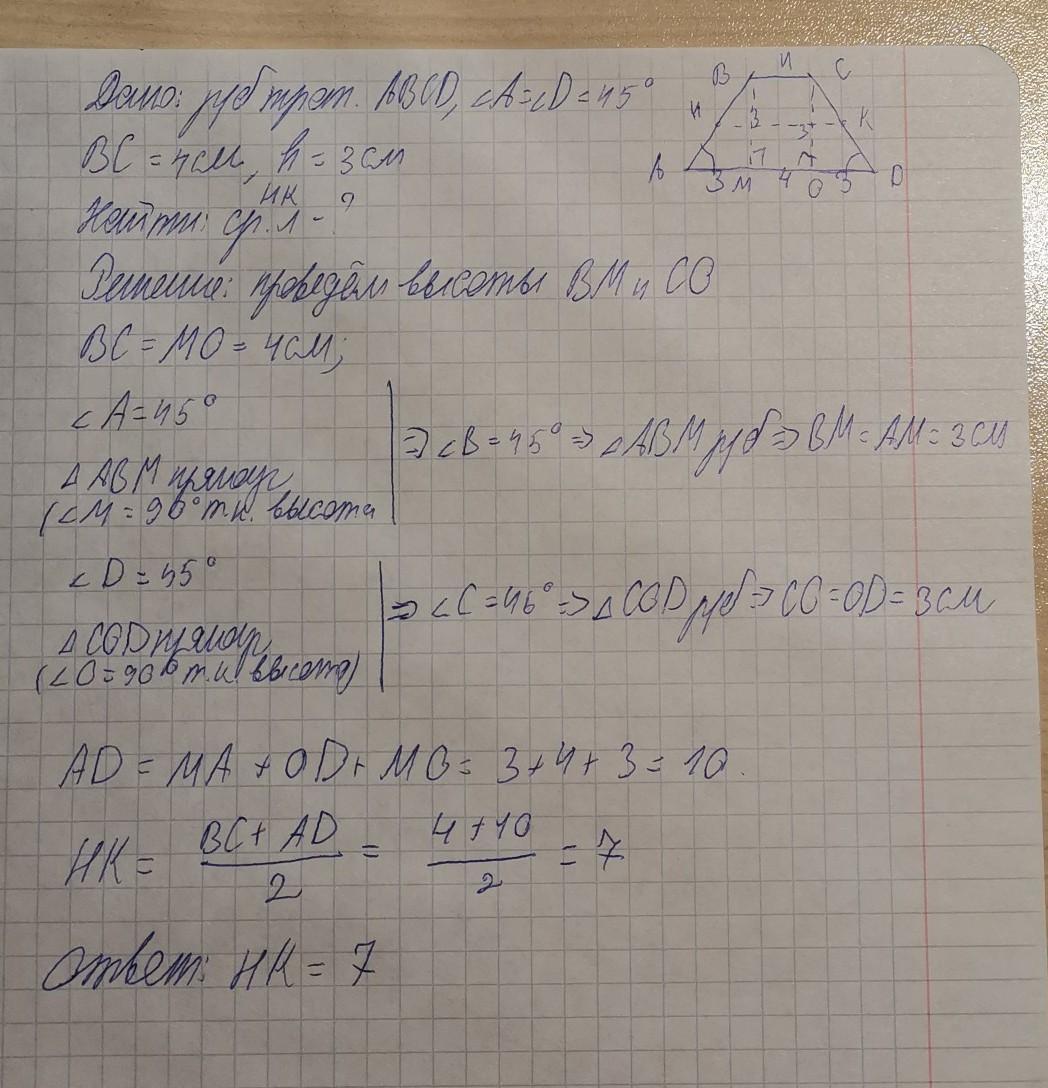 Дано: р/б трап. ABCD, ∠A=∠D=45°
BC=4см, h=3см
Найти: ср.л НК - ?
Решение: проведём высоты BM и CO
BC=MO=4см;
∠A=45°
△ABM прямоуг
(∠M=90° т.к. высота
⇒ ∠B=45° ⇒ △ABM р/б ⇒ BM=AM=3см
∠D=45°
△COD прямоуг
(∠O=90° т.к. высота)
⇒ ∠C=45° ⇒ △COD р/б ⇒ CO=OD=3см
AD = MA + OD + MO = 3+4+3=10.
HK = (BC+AD)/2 = (4+10)/2 = 7
Ответ: HK = 7
B 4 C
H 3 3 K
A 3 M 4 O 3 D